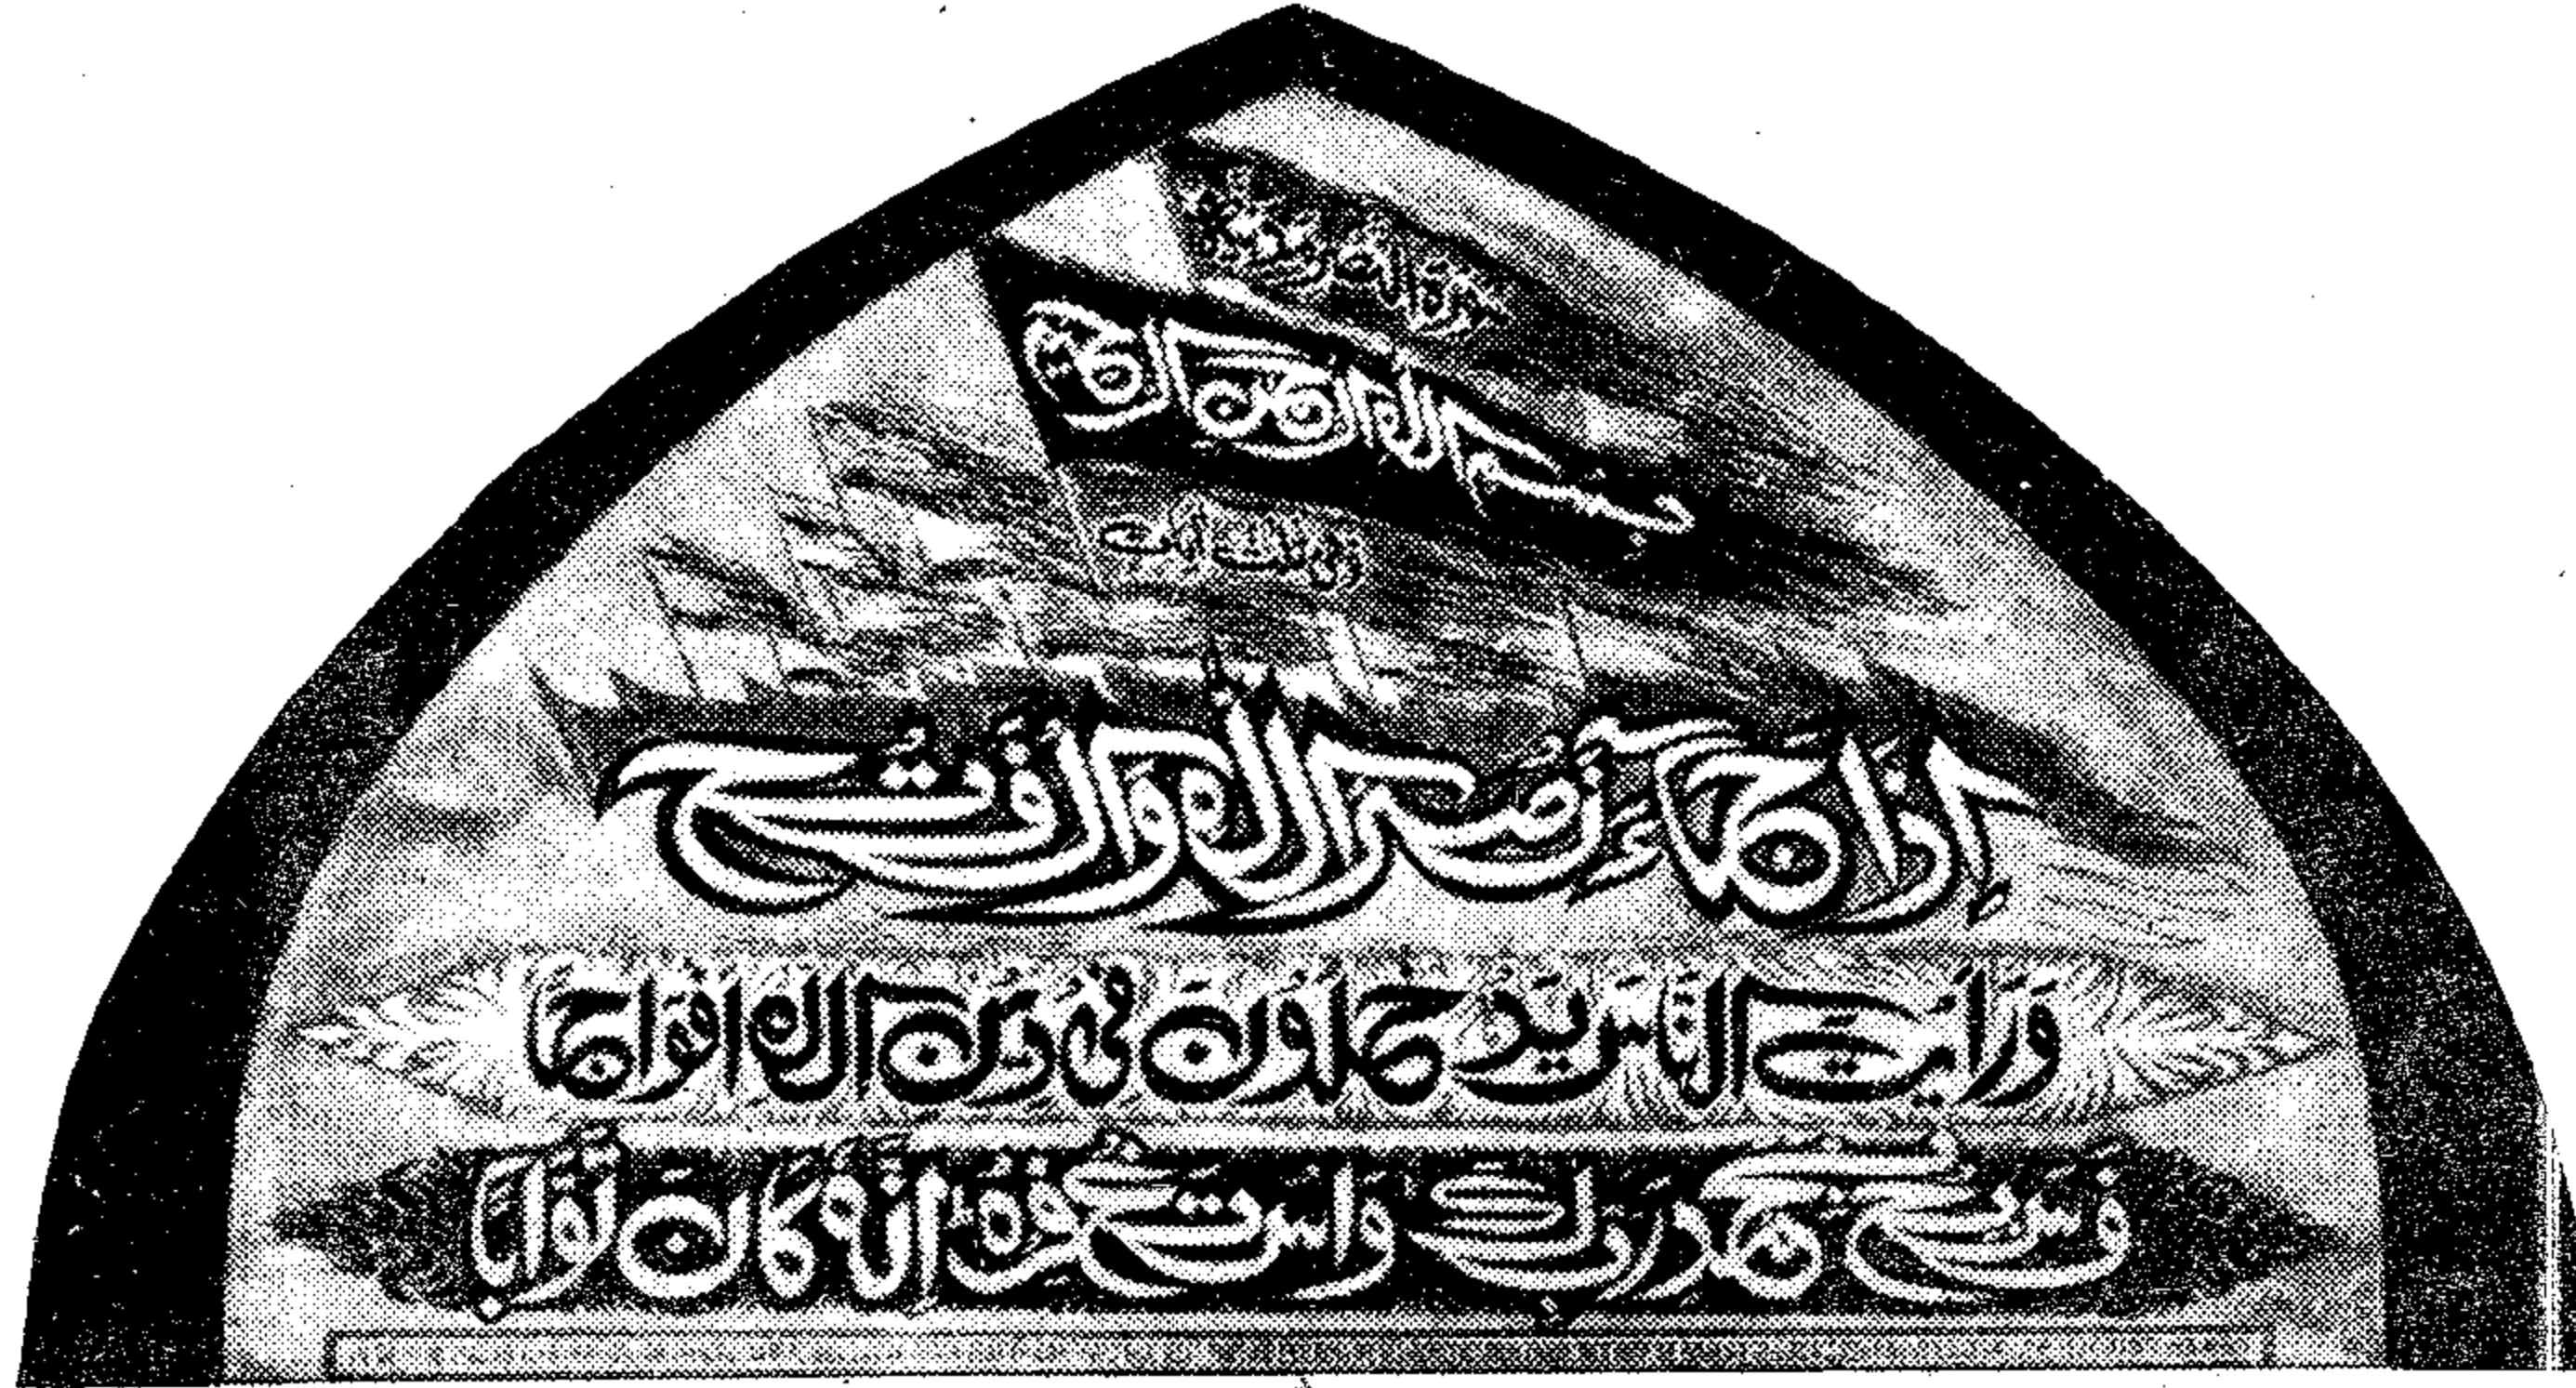 بسم الله الرحمن الرحيم
وهي ثلاث آيات
إِذَا جَآءَ نَصْرُ اللهِ وَالْفَتْحُ
وَرَأَيْتَ النَّاسَ يَدْخُلُونَ فِي دِينِ اللهِ أَفْوَاجًا
فَسَبِّحْ بِحَمْدِ رَبِّكَ وَاسْتَغْفِرْهُ إِنَّهُ كَانَ تَوَّابًا